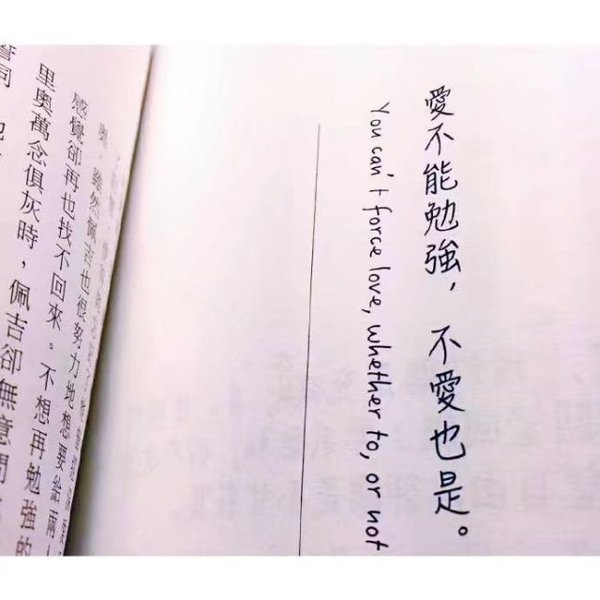 愛不能勉強，不愛也是。
You can't force love, whether to, or not
雖然佩吉也很努力地想要給兩
感覺卻再也找不回來。不想再勉強的
里奧萬念俱灰時，佩吉卻無意間